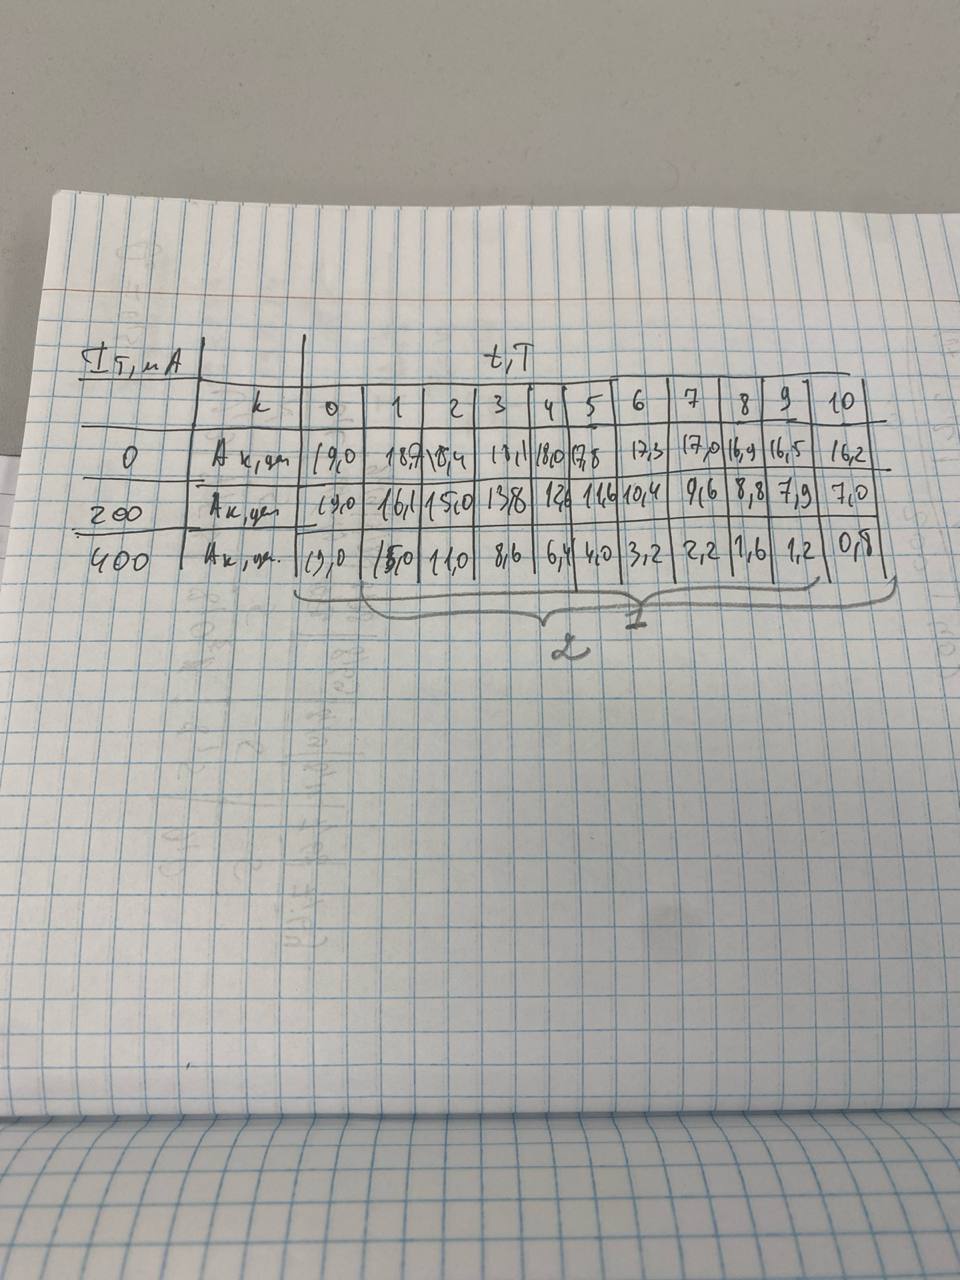 I т, мА t, T
k 0 1 2 3 4 5 6 7 8 9 10
0 Aк, дм 19,0 18,7 18,4 18,1 18,0 17,8 17,3 17,0 16,9 16,5 16,2
200 Aк, дм 19,0 16,1 15,0 13,8 12,6 11,6 10,4 9,6 8,8 7,9 7,0
400 Aк, дм. 19,0 15,0 11,0 8,6 6,4 4,0 3,2 2,2 1,6 1,2 0,8
1
2